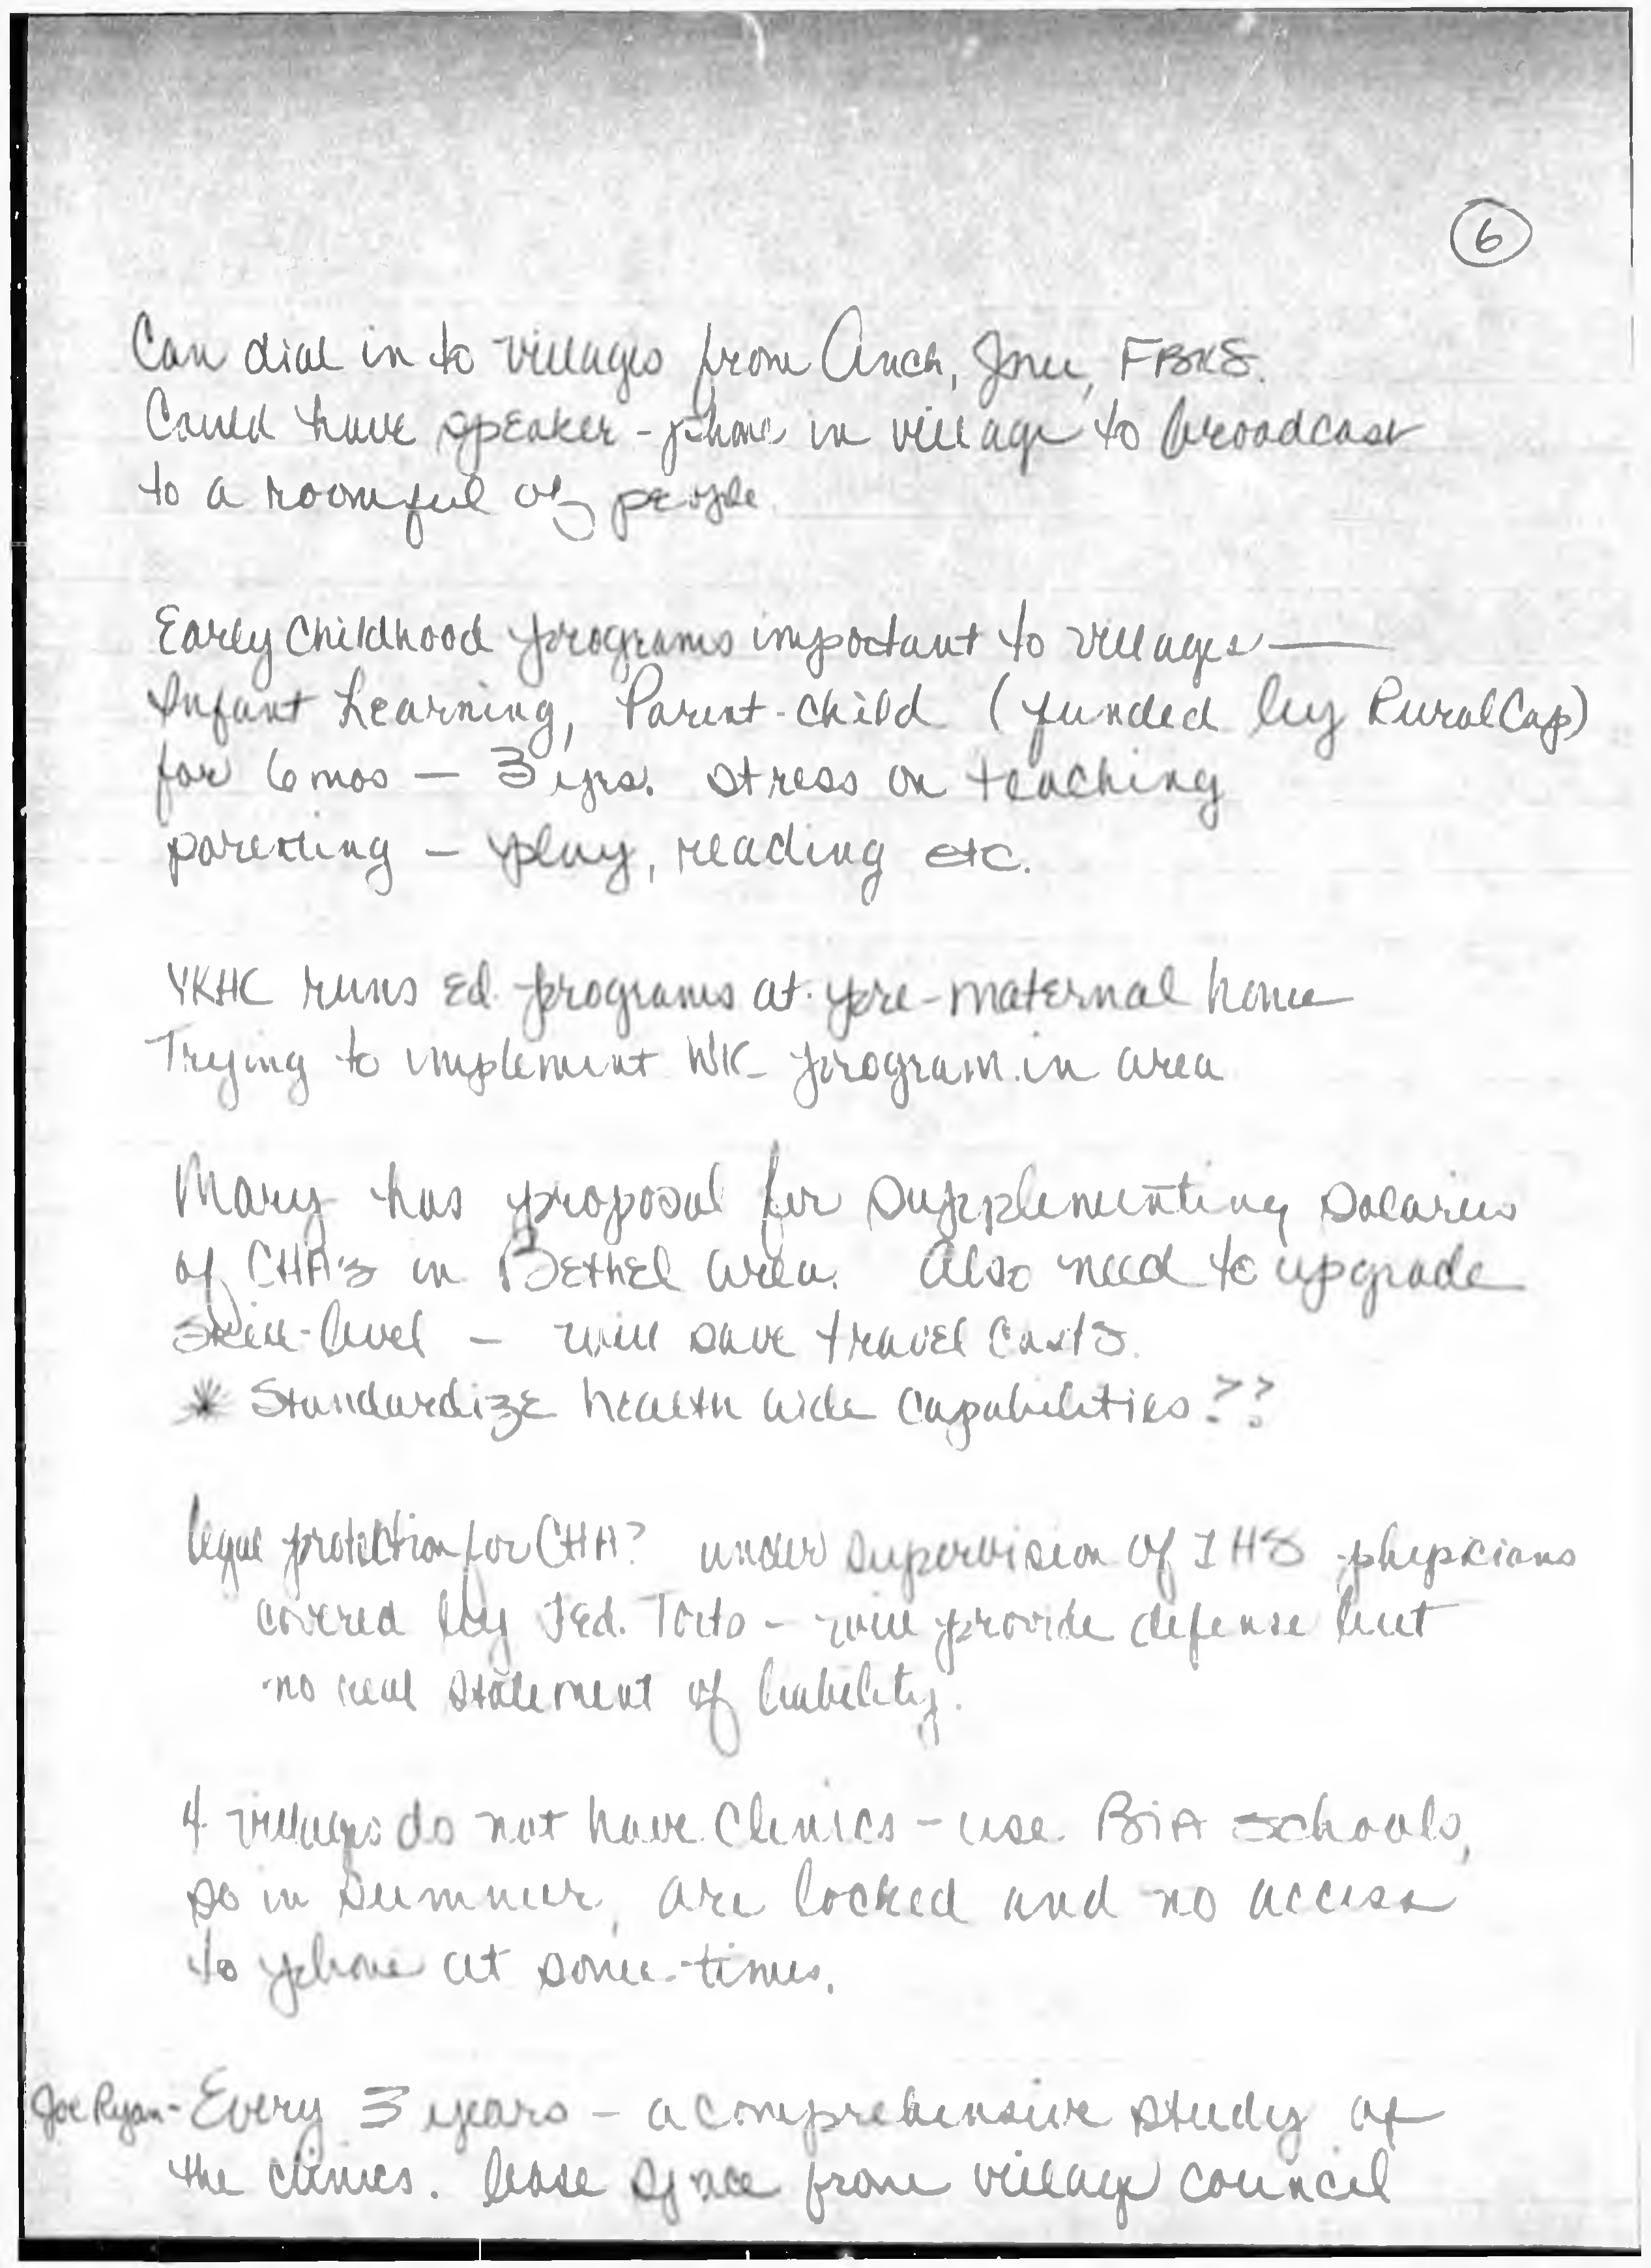 6
Can dial in to villages from Anch, Jnu, FBKS.
Could have speaker-phone in village to broadcast
to a roomful of people.
Early Childhood programs important to villages —
Infant Learning, Parent-Child (funded by RuralCap)
for 6 mos — 3 yrs. stress on teaching
parenting — play, reading etc.
YKHC runs Ed. programs at pre-maternal home
Trying to implement WIC program in area
Mary has proposal for supplementing salaries
of CHA's in Bethel area. Also need to upgrade
skill-level — will save travel costs.
* Standardize health aide capabilities??
legal protection for CHA? under supervision of IHS physicians
covered by Fed. Torts — will provide defense but
no real statement of liability.
4 villages do not have clinics — use BIA schools,
so in summer, are locked and no access
to phone at some-times.
Joe Ryan - Every 3 years — a comprehensive study of
the clinics. lease space from village council